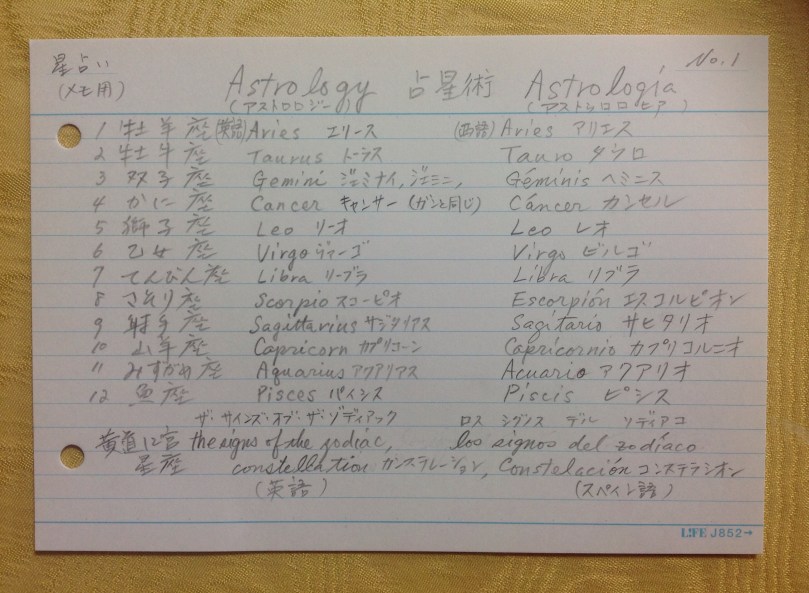 星占い
(メモ用)
No.1
Astrology 占星術 Astrología
(アストロロジー) (アストロロヒア)
1 牡羊座 (英語) Aries エリース (西語) Aries アリエス
2 牡牛座 Taurus トーラス Tauro タウロ
3 双子座 Gemini ジェミナイ,ジェミニ, Géminis ヘミニス
4 かに座 Cancer キャンサー (ガンと同じ) Cáncer カンセル
5 獅子座 Leo リーオ Leo レオ
6 乙女座 Virgo ヴァーゴ Virgo ビルゴ
7 てんびん座 Libra リーブラ Libra リブラ
8 さそり座 Scorpio スコーピオ Escorpión エスコルピオン
9 射手座 Sagittarius サジタリアス Sagitario サヒタリオ
10 山羊座 Capricorn カプリコーン Capricornio カプリコルニオ
11 みずがめ座 Aquarius アクアリアス Acuario アクアリオ
12 魚座 Pisces パイシス Piscis ピシス
ザ・サインズ・オブ・ザ・ゾディアック ロス シグノス デル ソディアコ
黄道12宮 the signs of the zodiac, los signos del zodíaco
星座 constellation カンステレーション, Constelación コンステラシオン
(英語) (スペイン語)
LIFE J852→